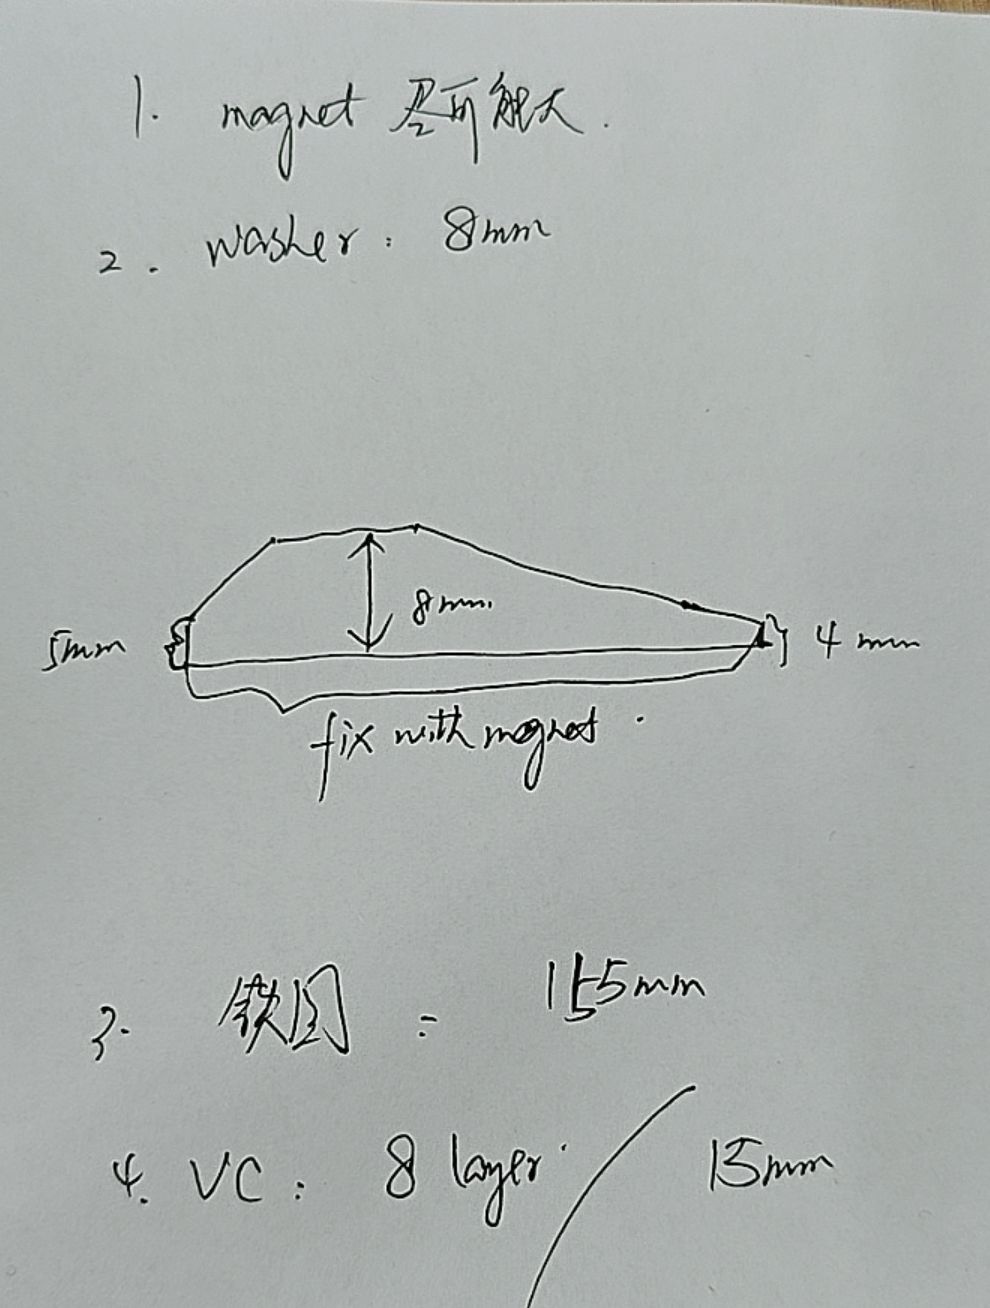 1. magnet 尽可能大.
2. washer: 8mm
8mm.
5mm
4mm
fix with magnet.
3. 铁圈: 155mm
4. VC: 8 layer. / 15mm